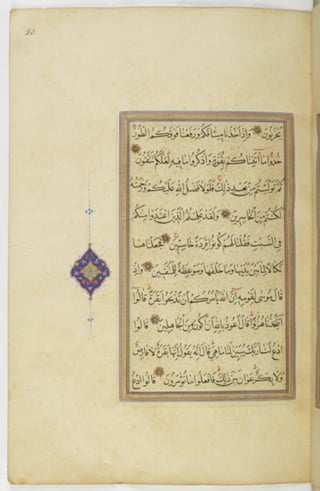 10
يَحْزَنُونَ وَإِذْ أَخَذْنَا مِيثَاقَكُمْ وَرَفَعْنَا فَوْقَكُمُ الطُّورَ
خُذُوا مَا آتَيْنَاكُمْ بِقُوَّةٍ وَاذْكُرُوا مَا فِيهِ لَعَلَّكُمْ تَتَّقُونَ
ثُمَّ تَوَلَّيْتُمْ مِنْ بَعْدِ ذَلِكَ فَلَوْلَا فَضْلُ اللَّهِ عَلَيْكُمْ وَرَحْمَتُهُ
لَكُنْتُمْ مِنَ الْخَاسِرِينَ وَلَقَدْ عَلِمْتُمُ الَّذِينَ اعْتَدَوْا مِنْكُمْ
فِي السَّبْتِ فَقُلْنَا لَهُمْ كُونُوا قِرَدَةً خَاسِئِينَ فَجَعَلْنَاهَا
نَكَالًا لِمَا بَيْنَ يَدَيْهَا وَمَا خَلْفَهَا وَمَوْعِظَةً لِلْمُتَّقِينَ وَإِذْ
قَالَ مُوسَى لِقَوْمِهِ إِنَّ اللَّهَ يَأْمُرُكُمْ أَنْ تَذْبَحُوا بَقَرَةً قَالُوا
أَتَتَّخِذُنَا هُزُوًا قَالَ أَعُوذُ بِاللَّهِ أَنْ أَكُونَ مِنَ الْجَاهِلِينَ قَالُوا
ادْعُ لَنَا رَبَّكَ يُبَيِّنْ لَنَا مَا هِيَ قَالَ إِنَّهُ يَقُولُ إِنَّهَا بَقَرَةٌ لَا فَارِضٌ
وَلَا بِكْرٌ عَوَانٌ بَيْنَ ذَلِكَ فَافْعَلُوا مَا تُؤْمَرُونَ قَالُوا ادْعُ